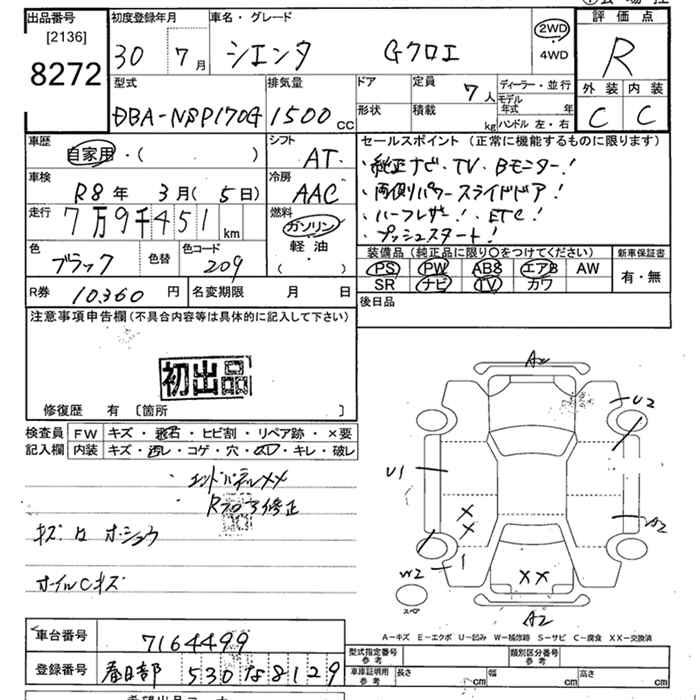 出品番号 初度登録年月 車名・グレード 2WD 評価点
[2136] 30年 7月 シエンタ Gクロエ 4WD R
8272 型式 排気量 ドア 定員 7人 ディーラー・並行 外装 内装
DBA-NSP170G 1500cc 形状 積載 kg モデル年式 年 C C
ハンドル 左・右
車歴 自家用・( ) シフト AT セールスポイント (正常に機能するものに限ります)
車検 R8年 3月( 5日) 冷房 AAC ・純正ナビ・TV・Bモニター!
走行 7万9千451km 燃料 ガソリン ・両側パワースライドドア!
軽油 ・ハーフレザー!・ETC!
・( ) ・プッシュスタート!
色 ブラック 色替 色コード 209 装備品 (純正品に限り○をつけてください) 新車保証書
PS PW ABS エアB AW 有・無
SR ナビ TV カワ
R券 10,360円 名変期限 月 日 後日品
注意事項申告欄 (不具合内容等は具体的に記入して下さい)
初出品
修復歴 有 〔箇所 〕
検査員 FW キズ・飛石・ヒビ割・リペア跡・×要
記入欄 内装 キズ・汚レ・コゲ・穴・・キレ・破レ
エンドパネルXX
Rフロア修正
キズ
オイルCキズ
A2
U2
U1
A2
X
X
W2
XX
スペア
A2
A-キズ E-エクボ U-凹み W-補修跡 S-サビ C-腐食 XX-交換済
車台番号 7164499
登録番号 春日部 530 な 8129
型式指定番号 参考 類別区分番号 参考
車庫証明用 参考 長さ cm 幅 cm 高さ cm